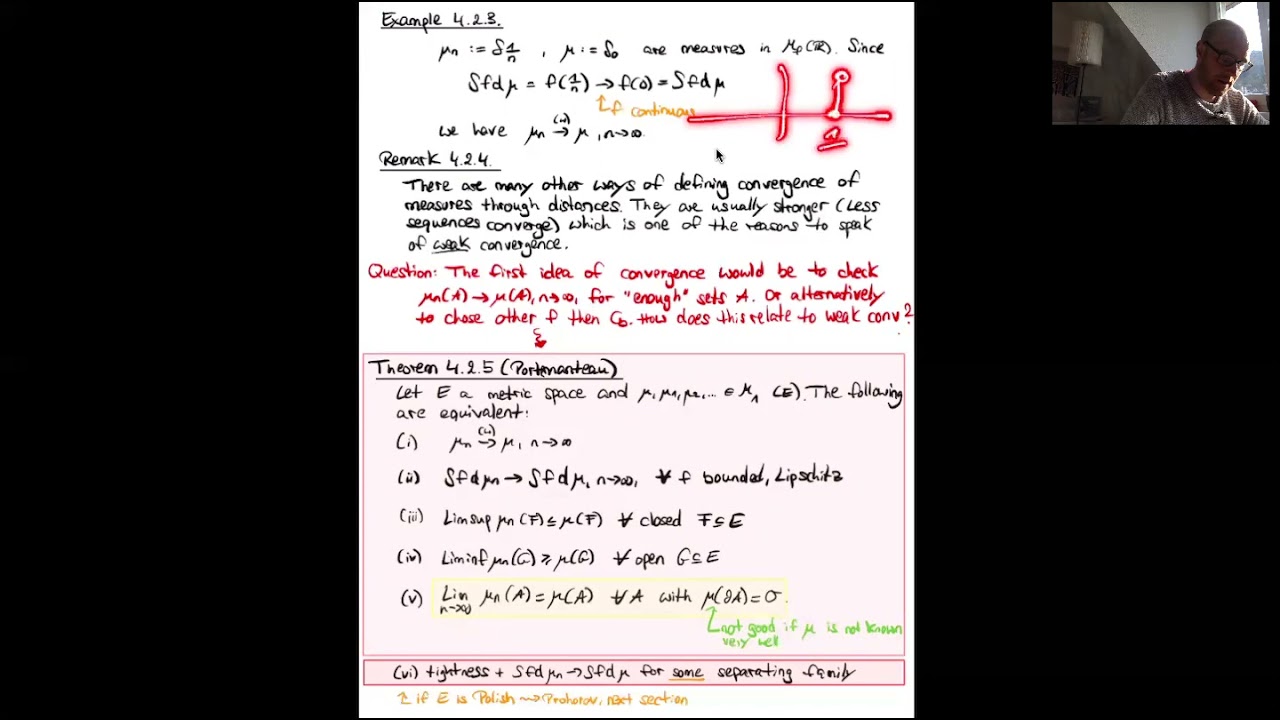 Example 4.2.3.
μn := δ1/n , μ := δ0 are measures in Mf(ℝ). Since
∫fdμ = f(1/n) → f(0) = ∫fdμ
↑ f continuous
we have μn (w)→ μ, n→∞.
1
Remark 4.2.4.
There are many other ways of defining convergence of
measures through distances. They are usually stronger (Less
sequences converge) which is one of the reasons to speak
of weak convergence.
Question: The first idea of convergence would be to check
μn(A) → μ(A), n→∞, for "enough" sets A. Or alternatively
to chose other f then Cb. How does this relate to weak conv?
Theorem 4.2.5 (Portmanteau)
Let E a metric space and μ, μ1, μ2, ... ∈ M1 (E). The following
are equivalent:
(i) μn (w)→ μ, n→∞
(ii) ∫fdμn → ∫fdμ, n→∞, ∀ f bounded, Lipschitz
(iii) Limsup μn(F) ≤ μ(F) ∀ closed F ⊆ E
(iv) Liminf μn(G) ≥ μ(G) ∀ open G ⊆ E
(v) Lim n→∞ μn(A) = μ(A) ∀ A with μ(∂A) = 0.
not good if μ is not known
very well
(vi) tightness + ∫fdμn → ∫fdμ for some separating family
↑ if E is Polish ⇝ Prohorov, next section